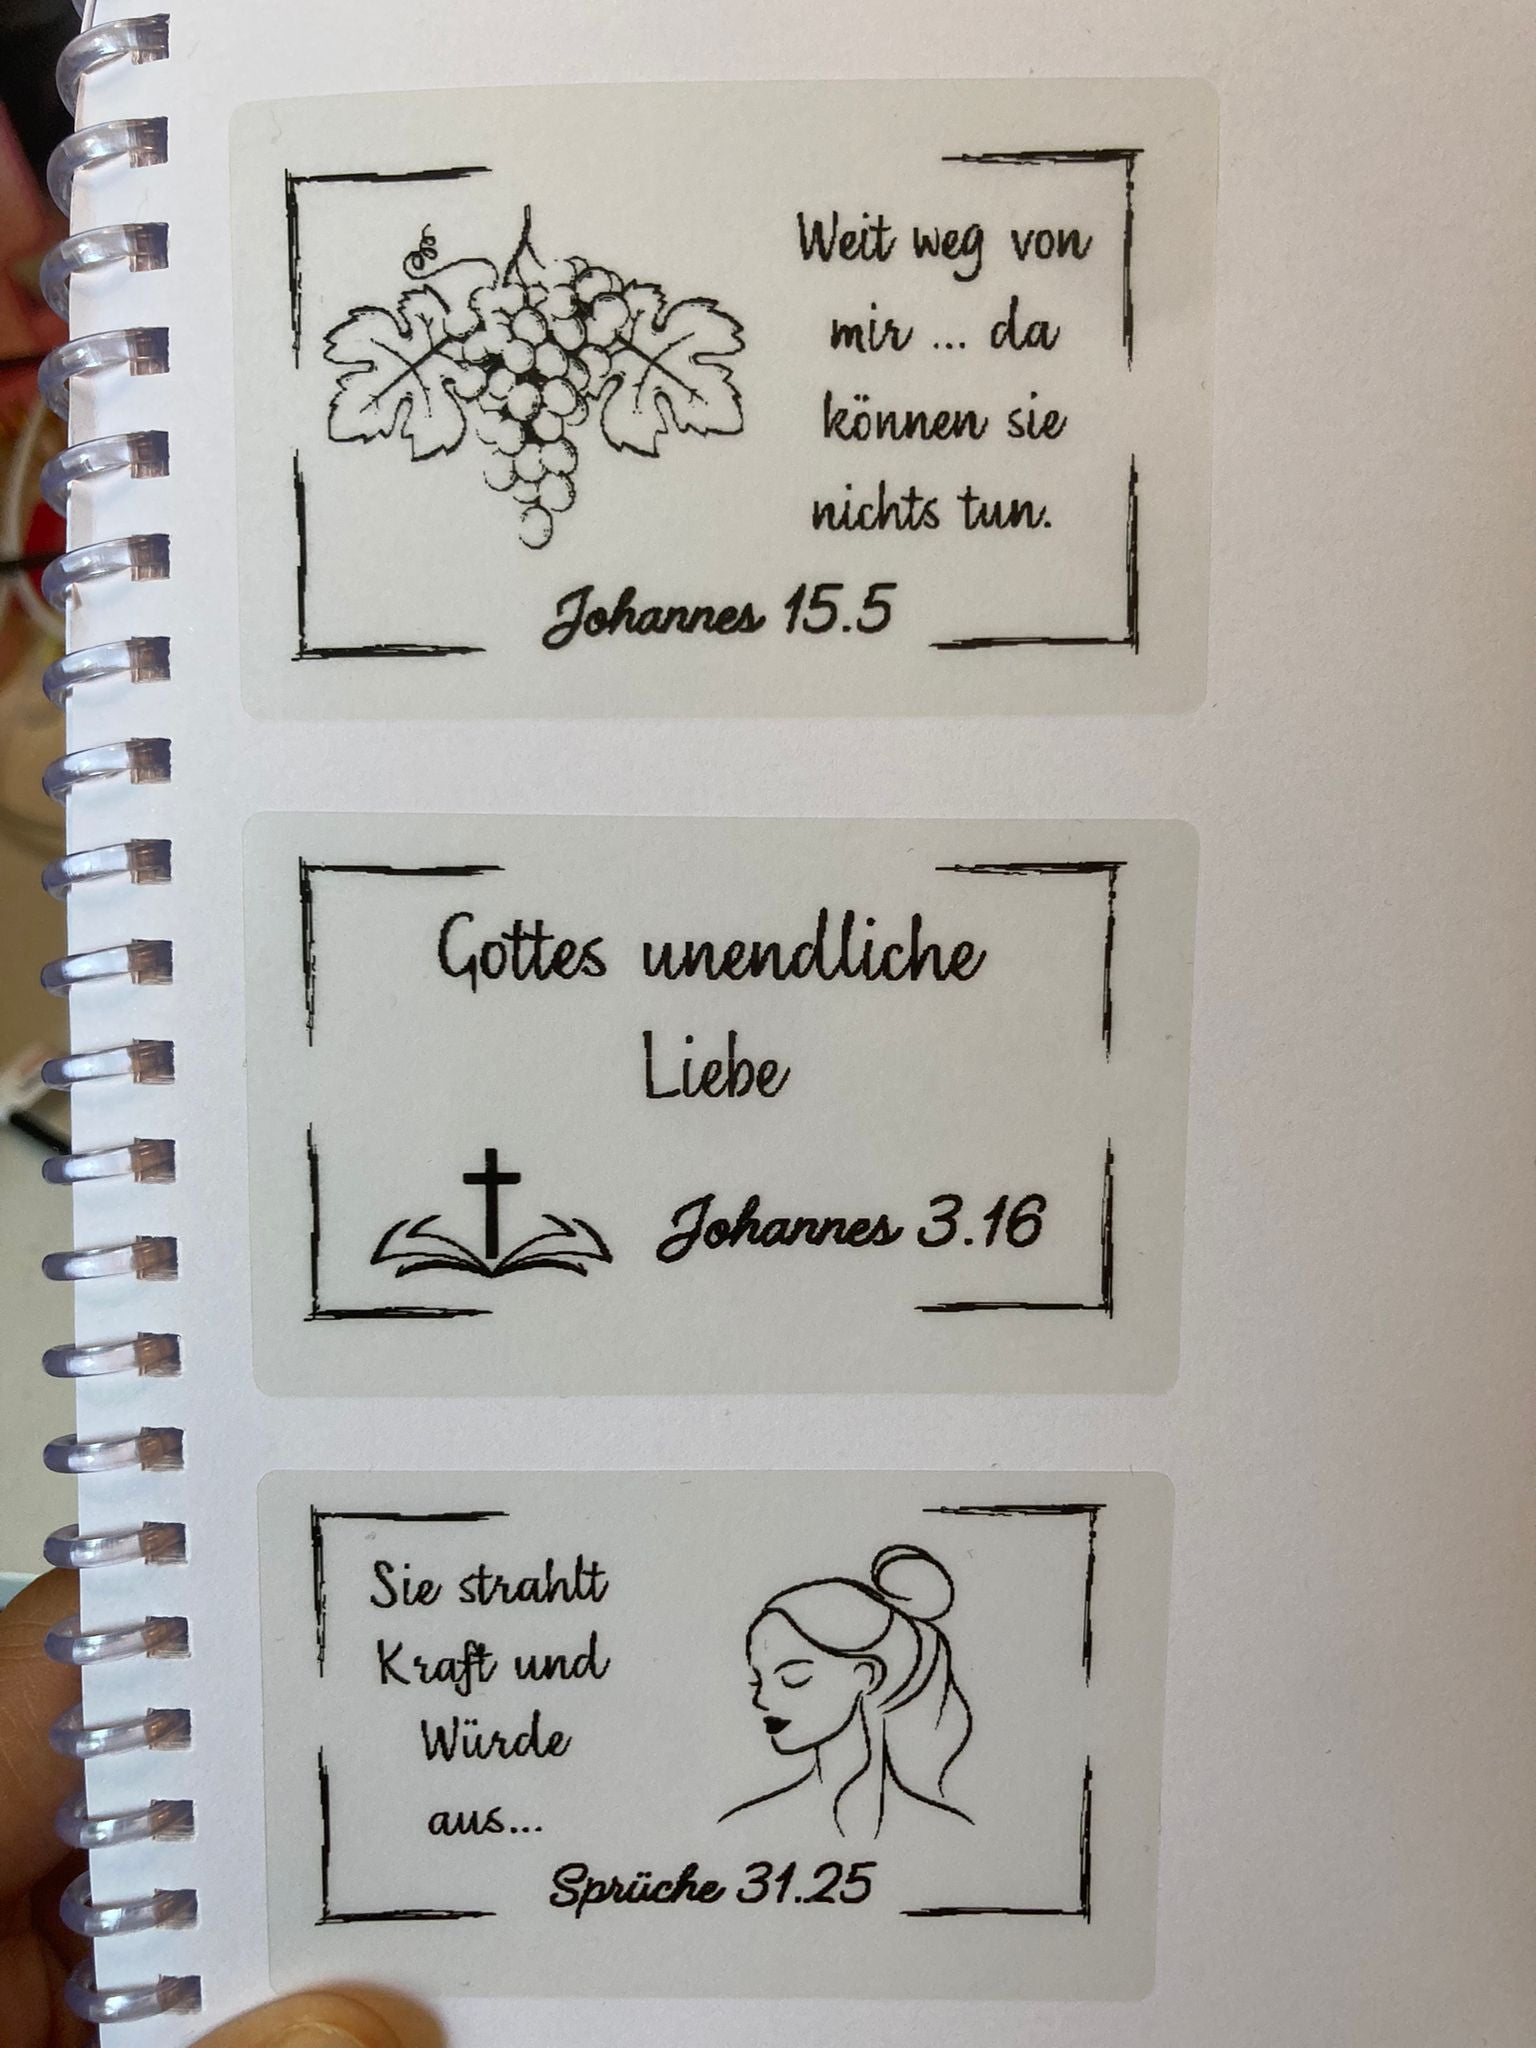 Weit weg von
mir ... da
können sie
nichts tun.
Johannes 15.5
Gottes unendliche
Liebe
Johannes 3.16
Sie strahlt
Kraft und
Würde
aus...
Sprüche 31.25